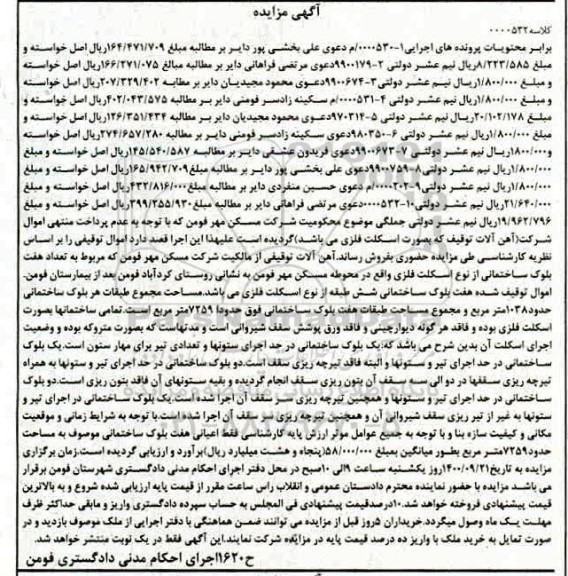 آگهی مزایده
کلاسه ۰۰۰۰۵۳۲
برابر محتویات پرونده های اجرایی۱-۰۰۰۰۵۳۰/م دعوی علی بخشی پور دایر بر مطالبه مبلغ ۱۶۴/۴۷۱/۷۰۹ریال اصل خواسته و
مبلغ ۸/۲۲۳/۵۸۵ریال نیم عشر دولتی ۲-۹۹۰۰۱۷۹دعوی مرتضی فراهانی دایر بر مطالبه ۱۶۶/۲۷۱/۰۷۵ریال اصل خواسته
و مبلغ ۱/۸۰۰/۰۰۰ریال نیم عشر دولتی۳-۹۹۰۰۶۷۴دعوی محمود مجیدیان دایر بر مطالبه ۲۰۷/۳۲۹/۴۰۲ریال اصل خواسته و
مبلغ ۱/۸۰۰/۰۰۰ریال نیم عشر دولتی ۴-۰۰۰۰۵۳۱/م سکینه زادسر فومنی دایر بر مطالبه ۴۰۲/۰۴۳/۵۷۵ریال اصل خواسته و
مبلغ ۲۰/۱۰۲/۱۷۸ریال نیم عشر دولتی ۵-۹۷۰۳۱۴دعوی محمود مجیدیان دایر بر مطالبه ۱۲۶/۳۵۱/۴۳۴ریال اصل خواسته و
مبلغ ۱/۸۰۰/۰۰۰ریال نیم عشر دولتی ۶-۹۸۰۳۵۰دعوی سکینه زادسر فومنی دایر بر مطالبه ۲۷۴/۶۵۷/۲۸۰ریال اصل خواسته
و ۱/۸۰۰/۰۰۰ریال نیم عشر دولتی ۷-۹۹۰۰۶۷۳دعوی فریدون عشقی دایر بر مطالبه ۱۴۵/۵۴۰/۵۸۷ریال اصل خواسته و مبلغ
۱/۸۰۰/۰۰۰ریال نیم عشر دولتی۸-۹۹۰۰۷۵۹دعوی علی بخشی پور دایر بر مطالبه مبلغ۱۶۵/۹۴۲/۷۰۹ریال اصل خواسته و مبلغ
۱/۸۰۰/۰۰۰ریال نیم عشر دولتی۹-۰۰۰۰۲۰۳/م دعوی حسین منفردی دایر بر مطالبه مبلغ۴۳۲/۸۱۶/۰۰۰ریال اصل خواسته و مبلغ
۲۱/۶۴۰/۰۰۰ریال نیم عشر دولتی۱۰-۰۰۰۰۵۳۲دعوی مرتضی فراهانی دایر بر مطالبه مبلغ۳۹۹/۲۵۵/۹۳۰ریال اصل خواسته و مبلغ
۱۹/۹۶۲/۷۹۶ریال نیم عشر دولتی جملگی موضوع محکومیت شرکت مسکن مهر فومن که با توجه به عدم پرداخت منتهی اموال
شرکت(آهن آلات توقیف که بصورت اسکلت فلزی می باشد)گردیده است علیهذا این اجرا قصد دارد اموال توقیفی را بر اساس
نظریه کارشناسی طی مزایده حضوری بفروش رساند.آهن آلات توقیفی از مالکیت شرکت مسکن مهر فومن که مربوط به تعداد هفت
بلوک ساختمانی از نوع اسکلت فلزی واقع در محوطه مسکن مهر فومن به نشانی روستای کردآباد فومن بعد از بیمارستان فومن.
اموال توقیف شده هفت بلوک ساختمانی شش طبقه از نوع اسکلت فلزی می باشد.مساحت مجموع طبقات هر بلوک ساختمانی
حدود۱۰۳۸متر مربع و مجموع مساحت طبقات هفت بلوک ساختمانی فوق حدودا ۷۲۵۹متر مربع است.تمامی ساختمانها بصورت
اسکلت فلزی بوده و فاقد هر گونه دیوارچینی و فاقد ورق پوشش سقف شیروانی است و مدتهاست که بصورت متروکه بوده و وضعیت
اجرای اسکلت آن بدین شرح می باشد که:یک بلوک ساختمانی در حد اجرای ستونها و تعدادی تیر برای مهار ستون است.یک بلوک
ساختمانی در حد اجرای تیر و ستونها و البته فاقد تیرچه ریزی سقف است.دو بلوک ساختمانی در حد اجرای تیر و ستونها به همراه
تیرچه ریزی سقفها در دو الی سه سقف آن بتون ریزی سقف انجام گردیده و بقیه ستونهای آن فاقد بتون ریزی است.دو بلوک
ساختمانی در حد اجرای تیر و ستونها و همچنین تیرچه ریزی سر سقف آن اجرا شده است.یک بلوک ساختمانی در اجرای تیر و
ستونها به غیر از تیر ریزی سقف شیروانی آن و همچنین تیرچه ریزی سر سقف آن اجرا شده است.با توجه به شرایط زمانی و موقعیت
مکانی و کیفیت سازه بنا و با توجه به جمیع عوامل موثر ارزش پایه کارشناسی فقط اعیانی هفت بلوک ساختمانی موصوف به مساحت
حدود۷۲۵۹متر مربع بطور میانگین بمبلغ ۵۸/۰۰۰/۰۰۰/۰۰۰(پنجاه و هشت میلیارد ریال)برآورد و ارزیابی گردیده است.زمان برگزاری
مزایده به تاریخ ۱۴۰۰/۰۹/۲۱روز یکشنبه ساعت ۹الی ۱۰صبح در محل دفتر اجرای احکام مدنی دادگستری شهرستان فومن برقرار
می باشد مزایده با حضور نماینده محترم دادستان عمومی و انقلاب راس ساعت مقرر از قیمت پایه ارزیابی شده شروع و به بالاترین
قیمت پیشنهادی فروخته خواهد شد.۱۰درصدقیمت پیشنهادی فی المجلس به حساب سپرده دادگستری واریز و مابقی حداکثر ظرف
مهلت یک ماه وصول میگردد.خریداران ۵روز قبل از مزایده می توانند ضمن هماهنگی با دفتر اجرایی از ملک موصوف بازدید و در
صورت تمایل به خرید ملک با واریز ده درصد قیمت پایه در مزایده شرکت نمایند.این آگهی فقط در یک نوبت منتشر خواهد شد.
ح۱۶۲۰اجرای احکام مدنی دادگستری فومن